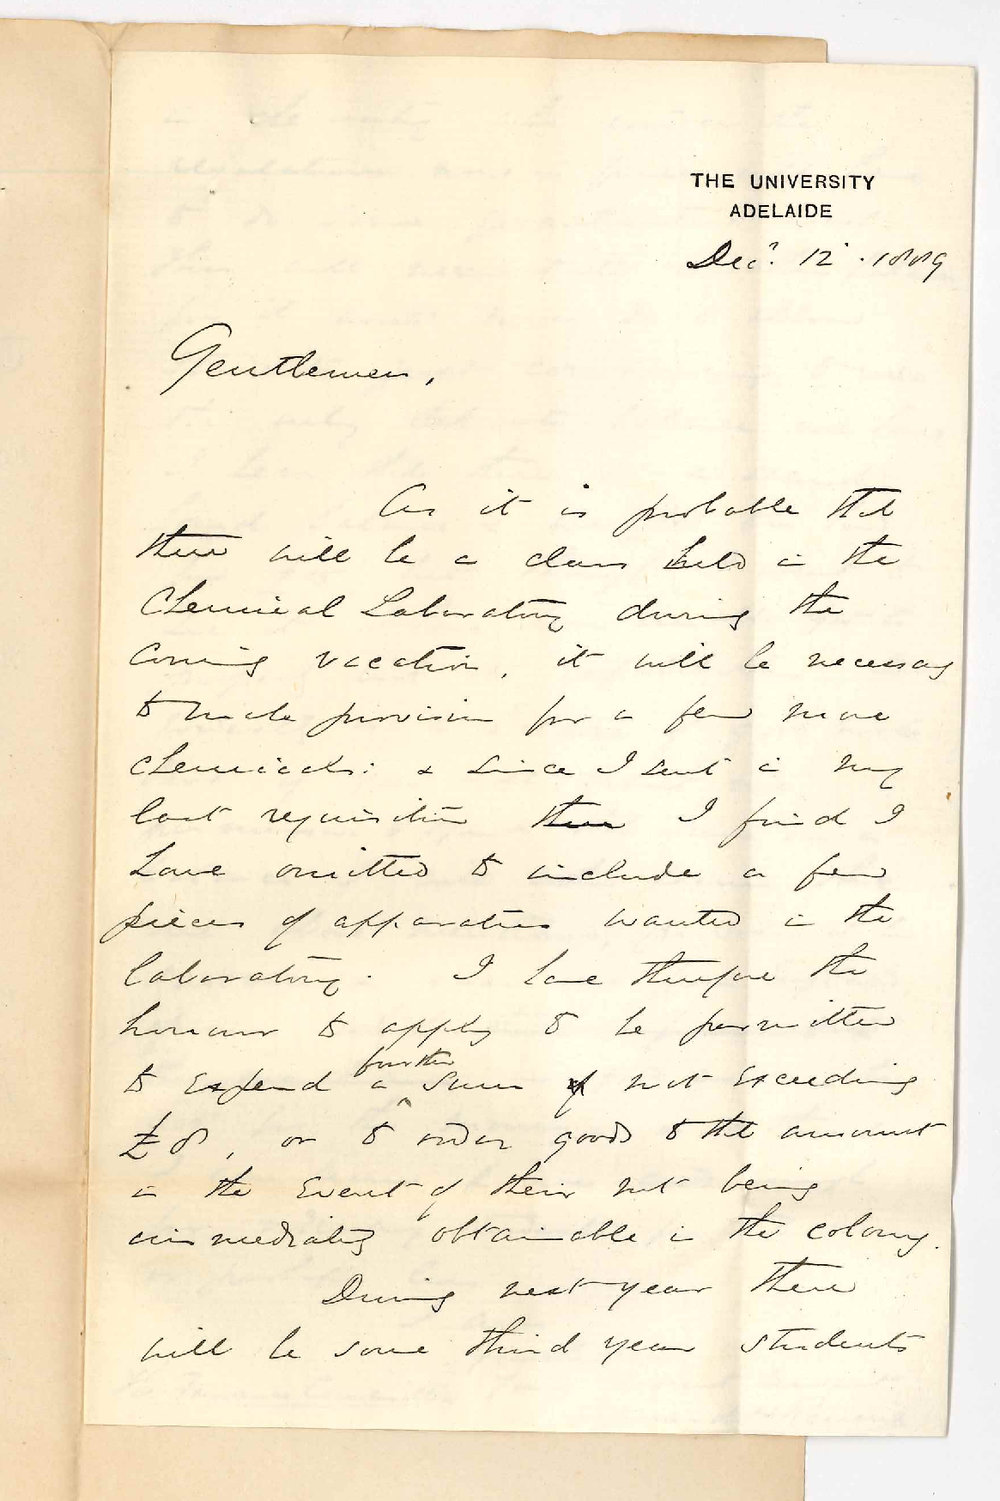 THE UNIVERSITY
ADELAIDE
Decr. 12. 1889
Gentlemen,
As it is probable that
there will be a class held in the
Chemical Laboratory during the
coming vacation, it will be necessary
to make provision for a few more
chemicals: & since I sent in my
last requisition there I find I
have omitted to include a few
pieces of apparatus wanted in the
laboratory. I have therefore the
honour to apply to be permitted
further
to expend a sum of not exceeding
£8, or to order goods to the amount
in the event of their not being
immediately obtainable in the colony.
During next year there
will be some third year students